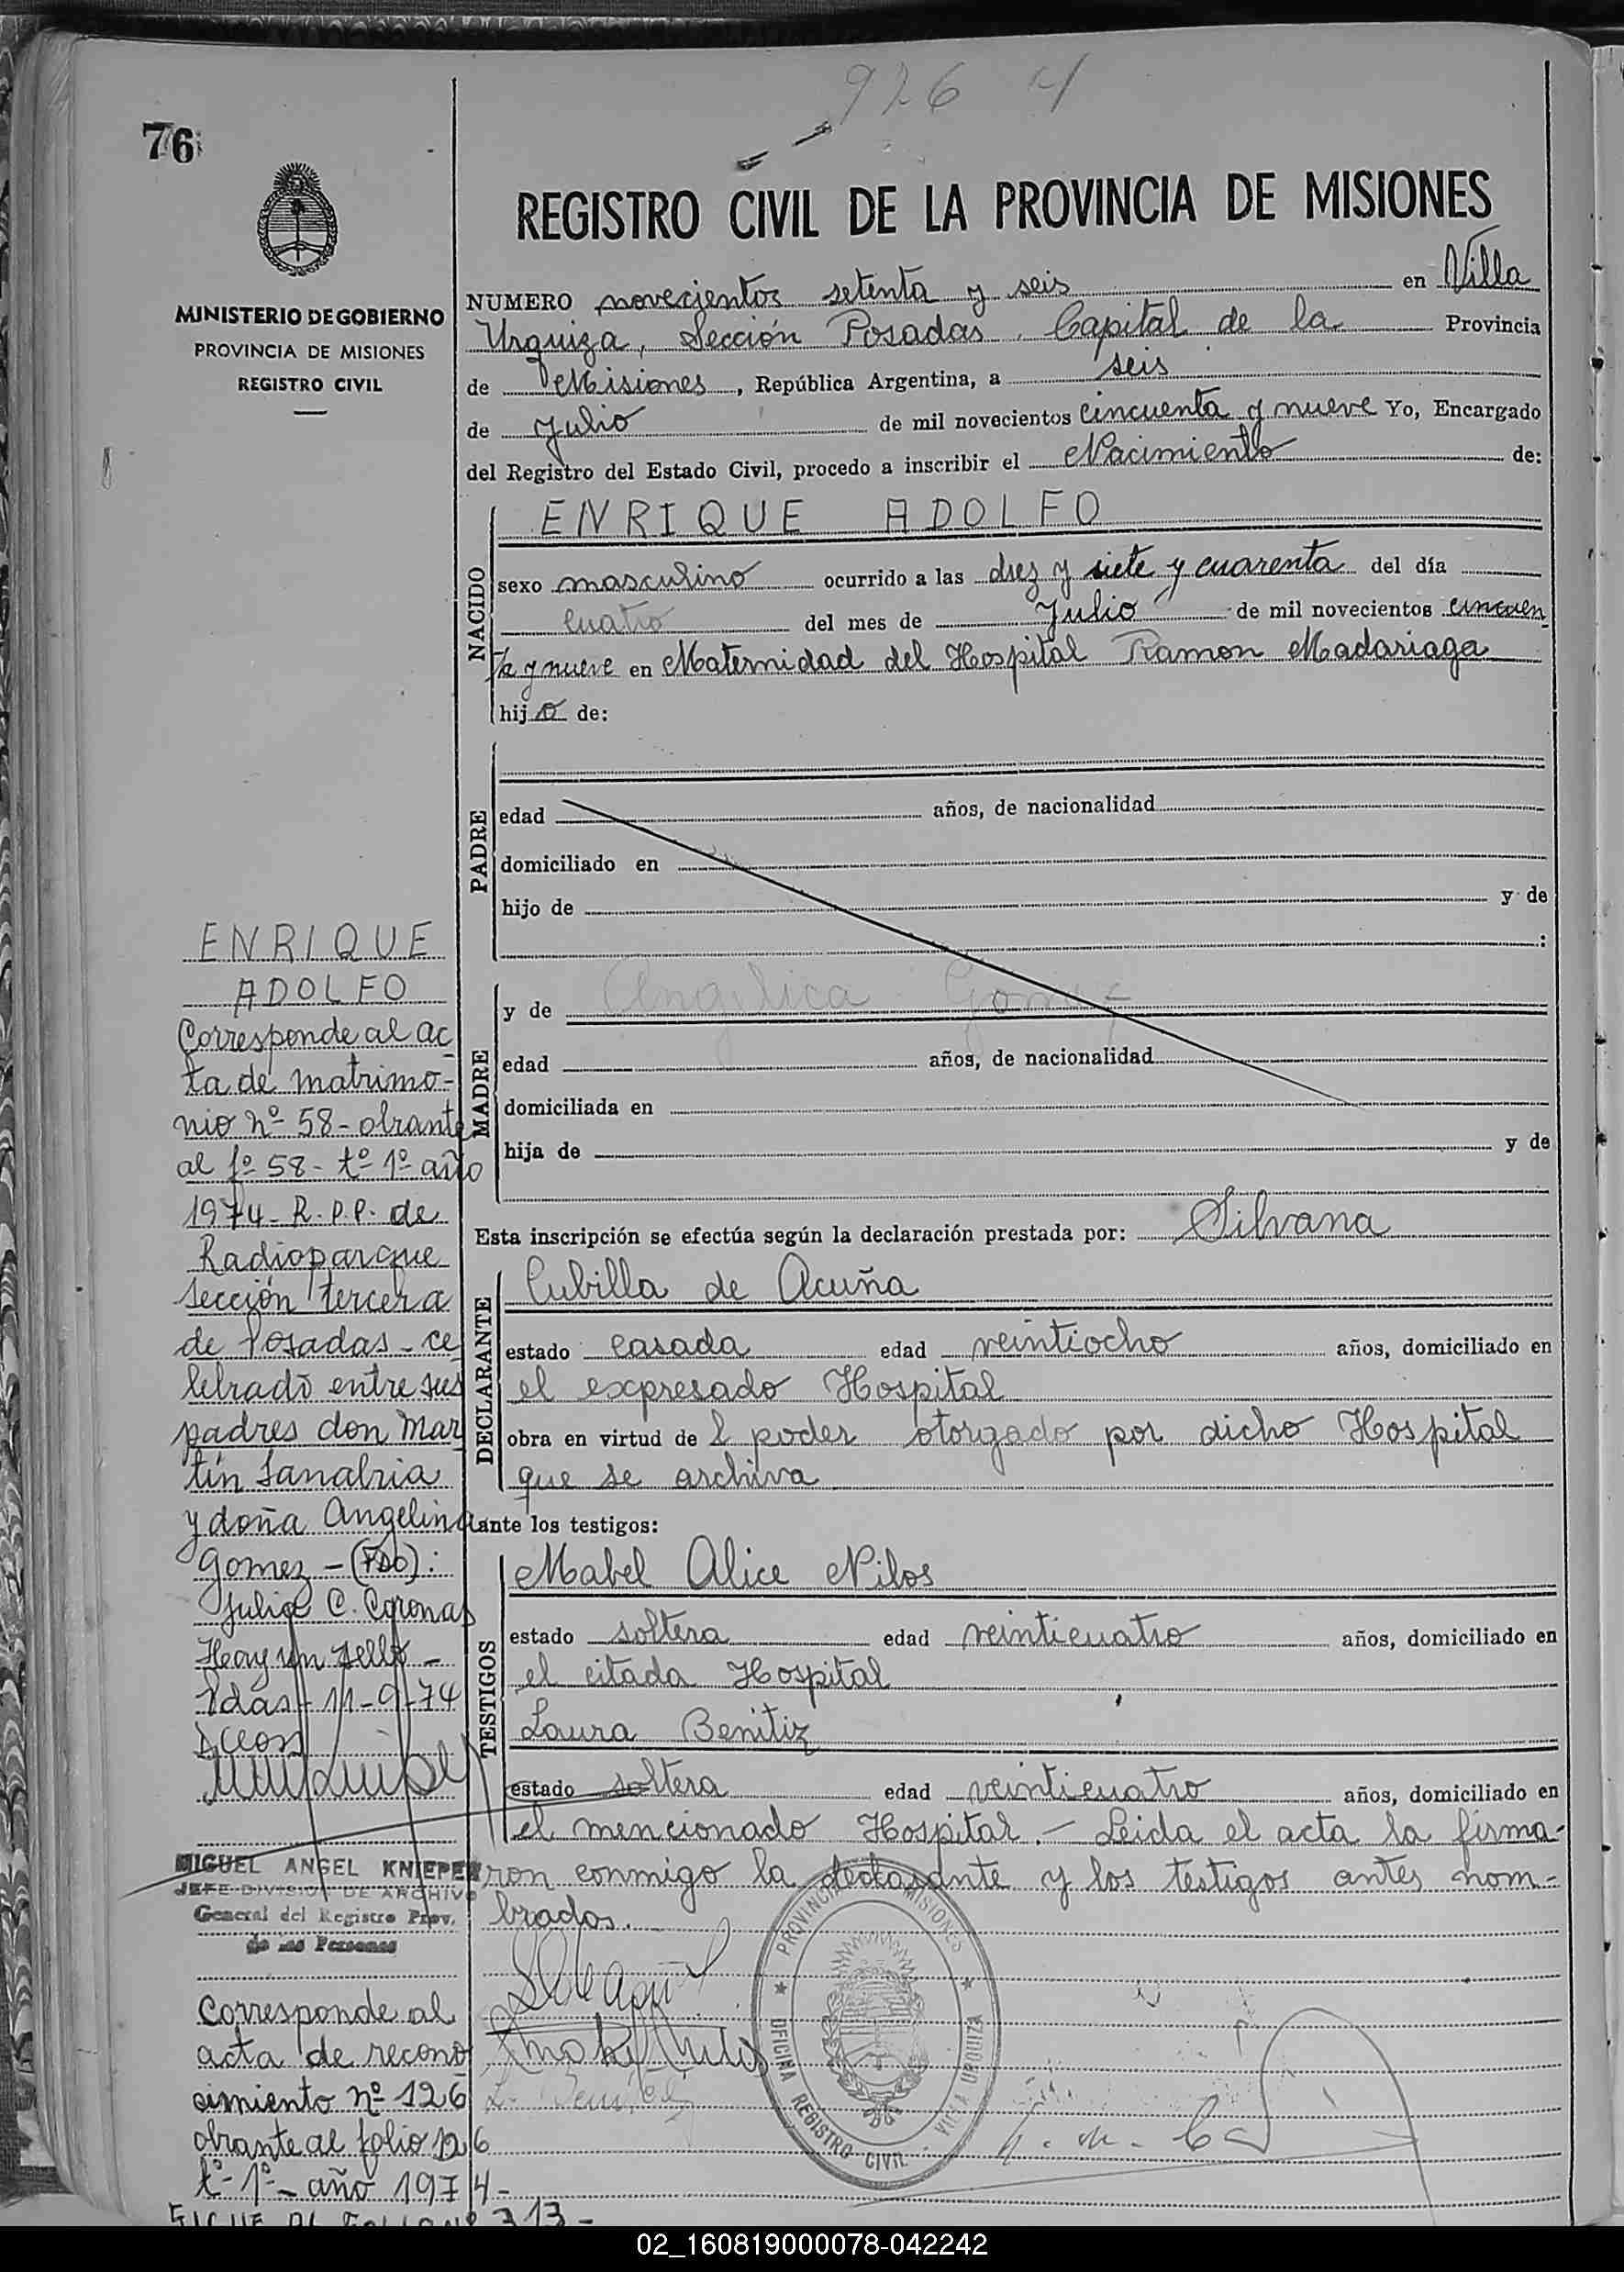 926 4
76
REGISTRO CIVIL DE LA PROVINCIA DE MISIONES
MINISTERIO DE GOBIERNO
PROVINCIA DE MISIONES
REGISTRO CIVIL
NUMERO novecientos setenta y seis en Villa
Urquiza, Sección Posadas, Capital de la Provincia
de Misiones, República Argentina, a seis
de Julio de mil novecientos cincuenta y nueve Yo, Encargado
del Registro del Estado Civil, procedo a inscribir el Nacimiento de:
NACIDO
ENRIQUE ADOLFO
sexo masculino ocurrido a las diez y siete y cuarenta del día
cuatro del mes de Julio de mil novecientos cincuen
ta y nueve en Maternidad del Hospital Ramon Madariaga
hijo de:
PADRE
edad años, de nacionalidad
domiciliado en
hijo de y de
:
MADRE
y de Angelica Gomez
edad años, de nacionalidad
domiciliada en
hija de y de
Esta inscripción se efectúa según la declaración prestada por: Silvana
DECLARANTE
Cubilla de Acuña
estado casada edad veintiocho años, domiciliado en
el expresado Hospital
obra en virtud de l poder otorgado por dicho Hospital
que se archiva
ante los testigos:
TESTIGOS
Mabel Alice Nilos
estado soltera edad veinticuatro años, domiciliado en
el citada Hospital
Laura Benitiz
estado soltera edad veinticuatro años, domiciliado en
el mencionado Hospital.- Leida el acta la firma-
ron conmigo la declarante y los testigos antes nom-
brados.
PROVINCIA DE MISIONES
OFICINA REGISTRO CIVIL - VILLA URQUIZA
ENRIQUE
ADOLFO
Corresponde al ac
ta de matrimo-
nio nº 58 - obrante
al fº 58 - tº 1º año
1974 - R.P.P. de
Radioparque
sección tercera
de Posadas - ce
lebrado entre sus
padres don Mar
tín Sanabria
y doña Angelina
Gomez - (FDO):
Julio C. Coronas
Hay un sello -
Pdas - 11-9-74
MIGUEL ANGEL KNIEPER
JEFE DIVISION DE ARCHIVO
General del Registro Prov.
de las Personas
Corresponde al
acta de recono
simiento nº 126
obrante al folio 126
tº 1º - año 1974 -
SIGUE AL FOLIO Nº 313 -
02_160819000078-042242